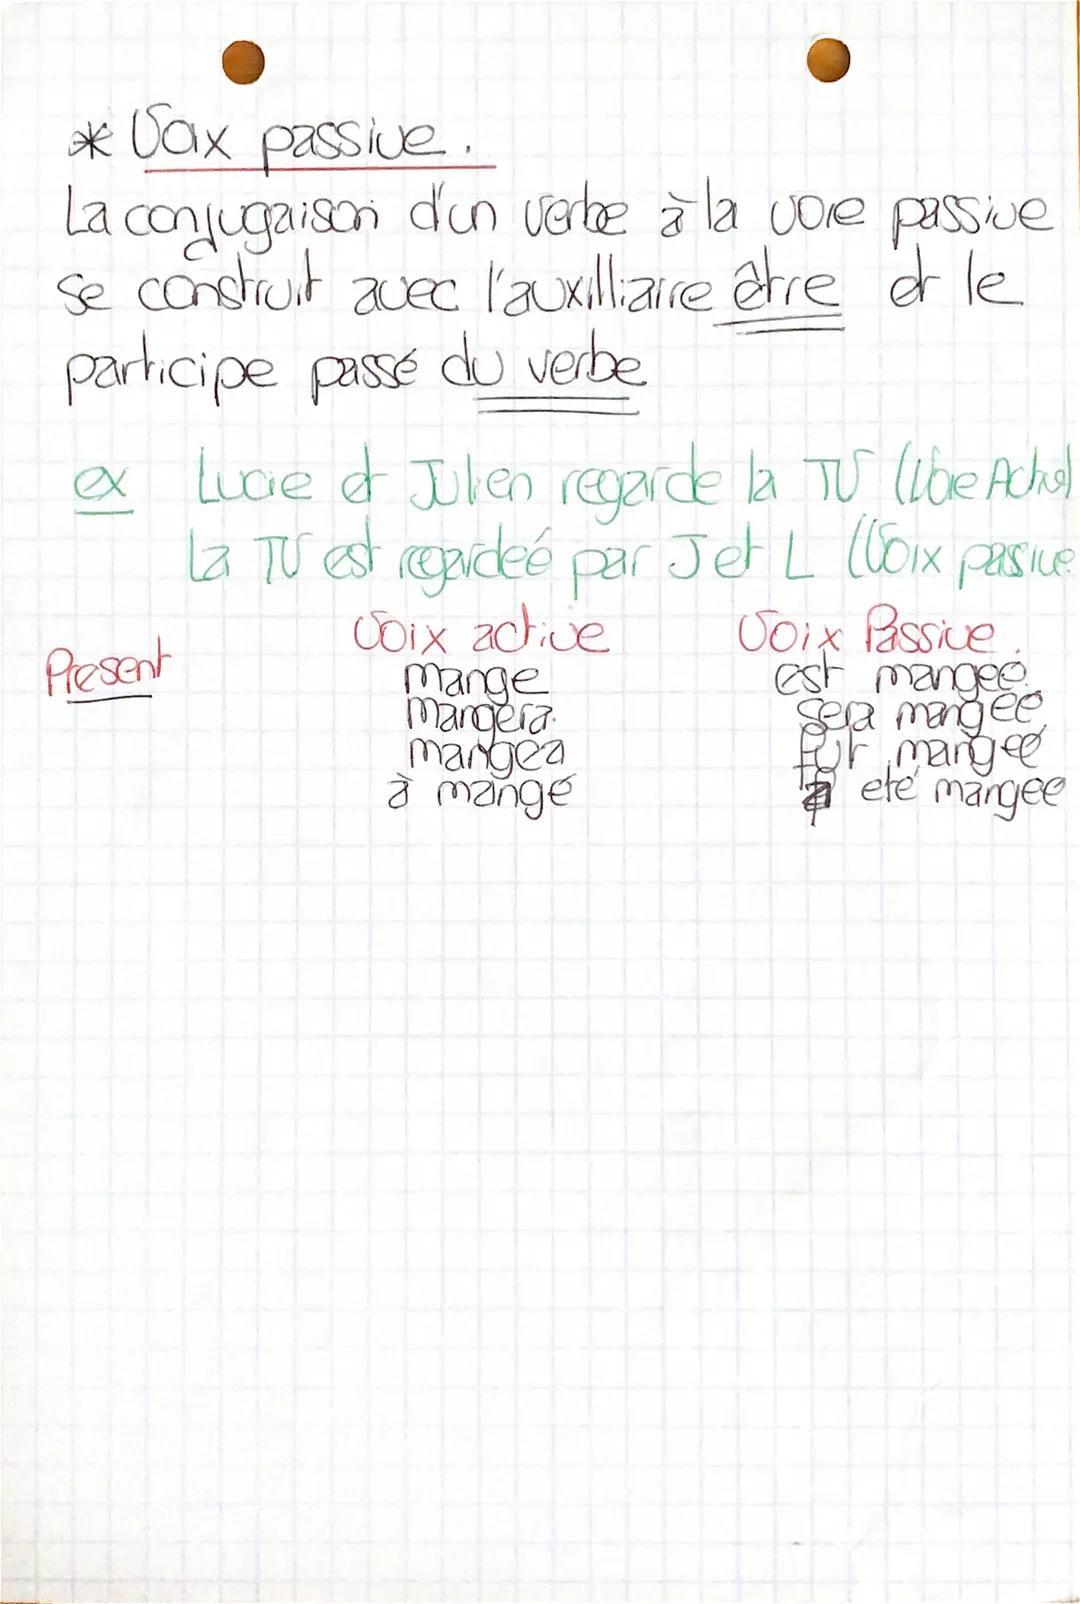 * Voix passive.
La conjugaison d'un verbe à la voie passive
se construit avec l'auxilliaire être et le
participe passé du verbe
ex Lucie et Julien regarde la TV (Voie Active)
La TV est regardeé par J et L (Voix passive
Voix active Voix Passive.
Present mange est mangee.
mangera. sera mangée
mangea fut mangeé
à mangé a eté mangee